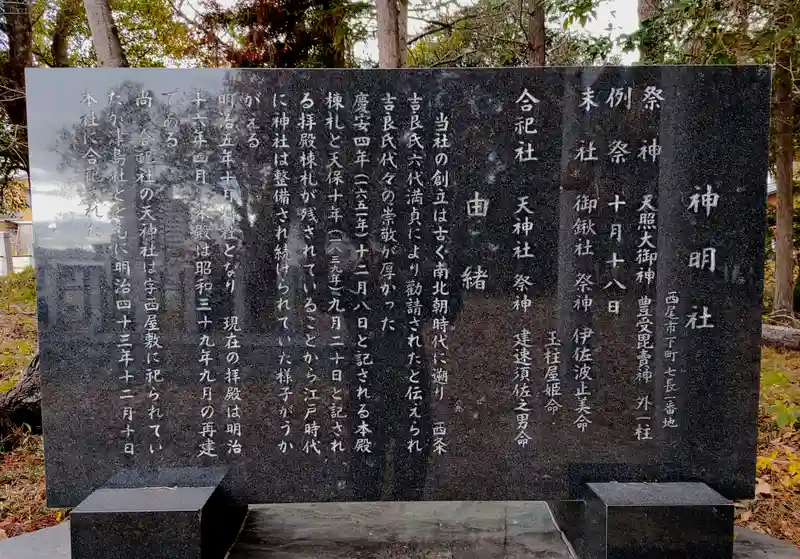 神明社
西尾市下町七長一番地
祭神 天照大御神 豊受毘賣神 外一柱
例祭 十月十八日
末社 御鍬社 祭神 伊佐波止美命
玉柱屋姫命
合祀社 天神社 祭神 建速須佐之男命
由緒
当社の創立は古く南北朝時代に遡り 西条
吉良氏六代満貞により勧請されたと伝えられ
吉良氏代々の崇敬が厚かった
慶安四年(一六五一年)十二月八日と記される本殿
棟札と天保十年(一八三九年)九月二十日と記され
る拝殿棟札が残されていることから江戸時代
に神社は整備され続けられていた様子がうか
がえる
明治五年十月 社となり 現在の拝殿は明治
十六年四月 本殿は昭和三十九年九月の再建
である
尚 合祀社の天神社は字西屋敷に祀られてい
たが津島社とともに明治四十三年十二月十日
本社に合祀された